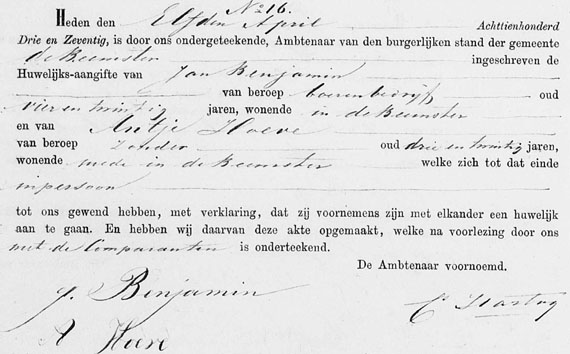 No 16.
Heden den Elfden April Achttienhonderd
Drie en Zeventig, is door ons ondergeteekende, Ambtenaar van den burgerlijken stand der gemeente
de Beemster ingeschreven de
Huwelijks-aangifte van Jan Benjamin
van beroep boerenbedrijf oud
vier en twintig jaren, wonende in de Beemster
en van Antje Hoeve
van beroep zonder oud drie en twintig jaren,
wonende mede in de Beemster welke zich tot dat einde
in persoon
tot ons gewend hebben, met verklaring, dat zij voornemens zijn met elkander een huwelijk
aan te gaan. En hebben wij daarvan deze akte opgemaakt, welke na voorlezing door ons
met de Comparanten is onderteekend.
De Ambtenaar voornoemd.
J. Benjamin
A Hoeve